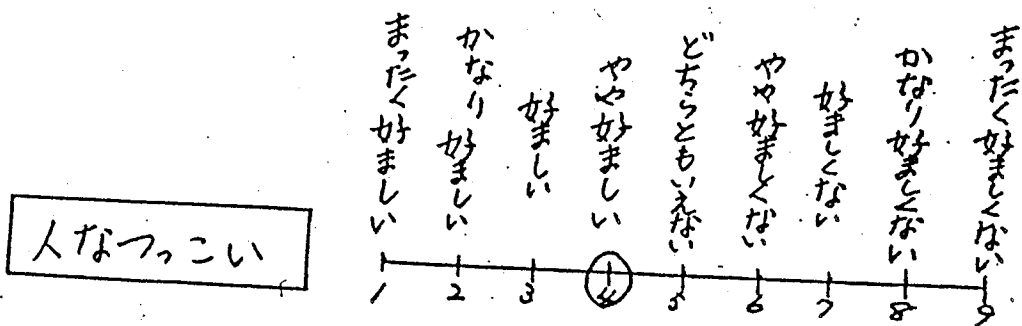 人なつっこい
まったく好ましい
かなり好ましい
好ましい
やや好ましい
どちらともいえない
やや好ましくない
好ましくない
かなり好ましくない
まったく好ましくない
1 2 3 4 5 6 7 8 9